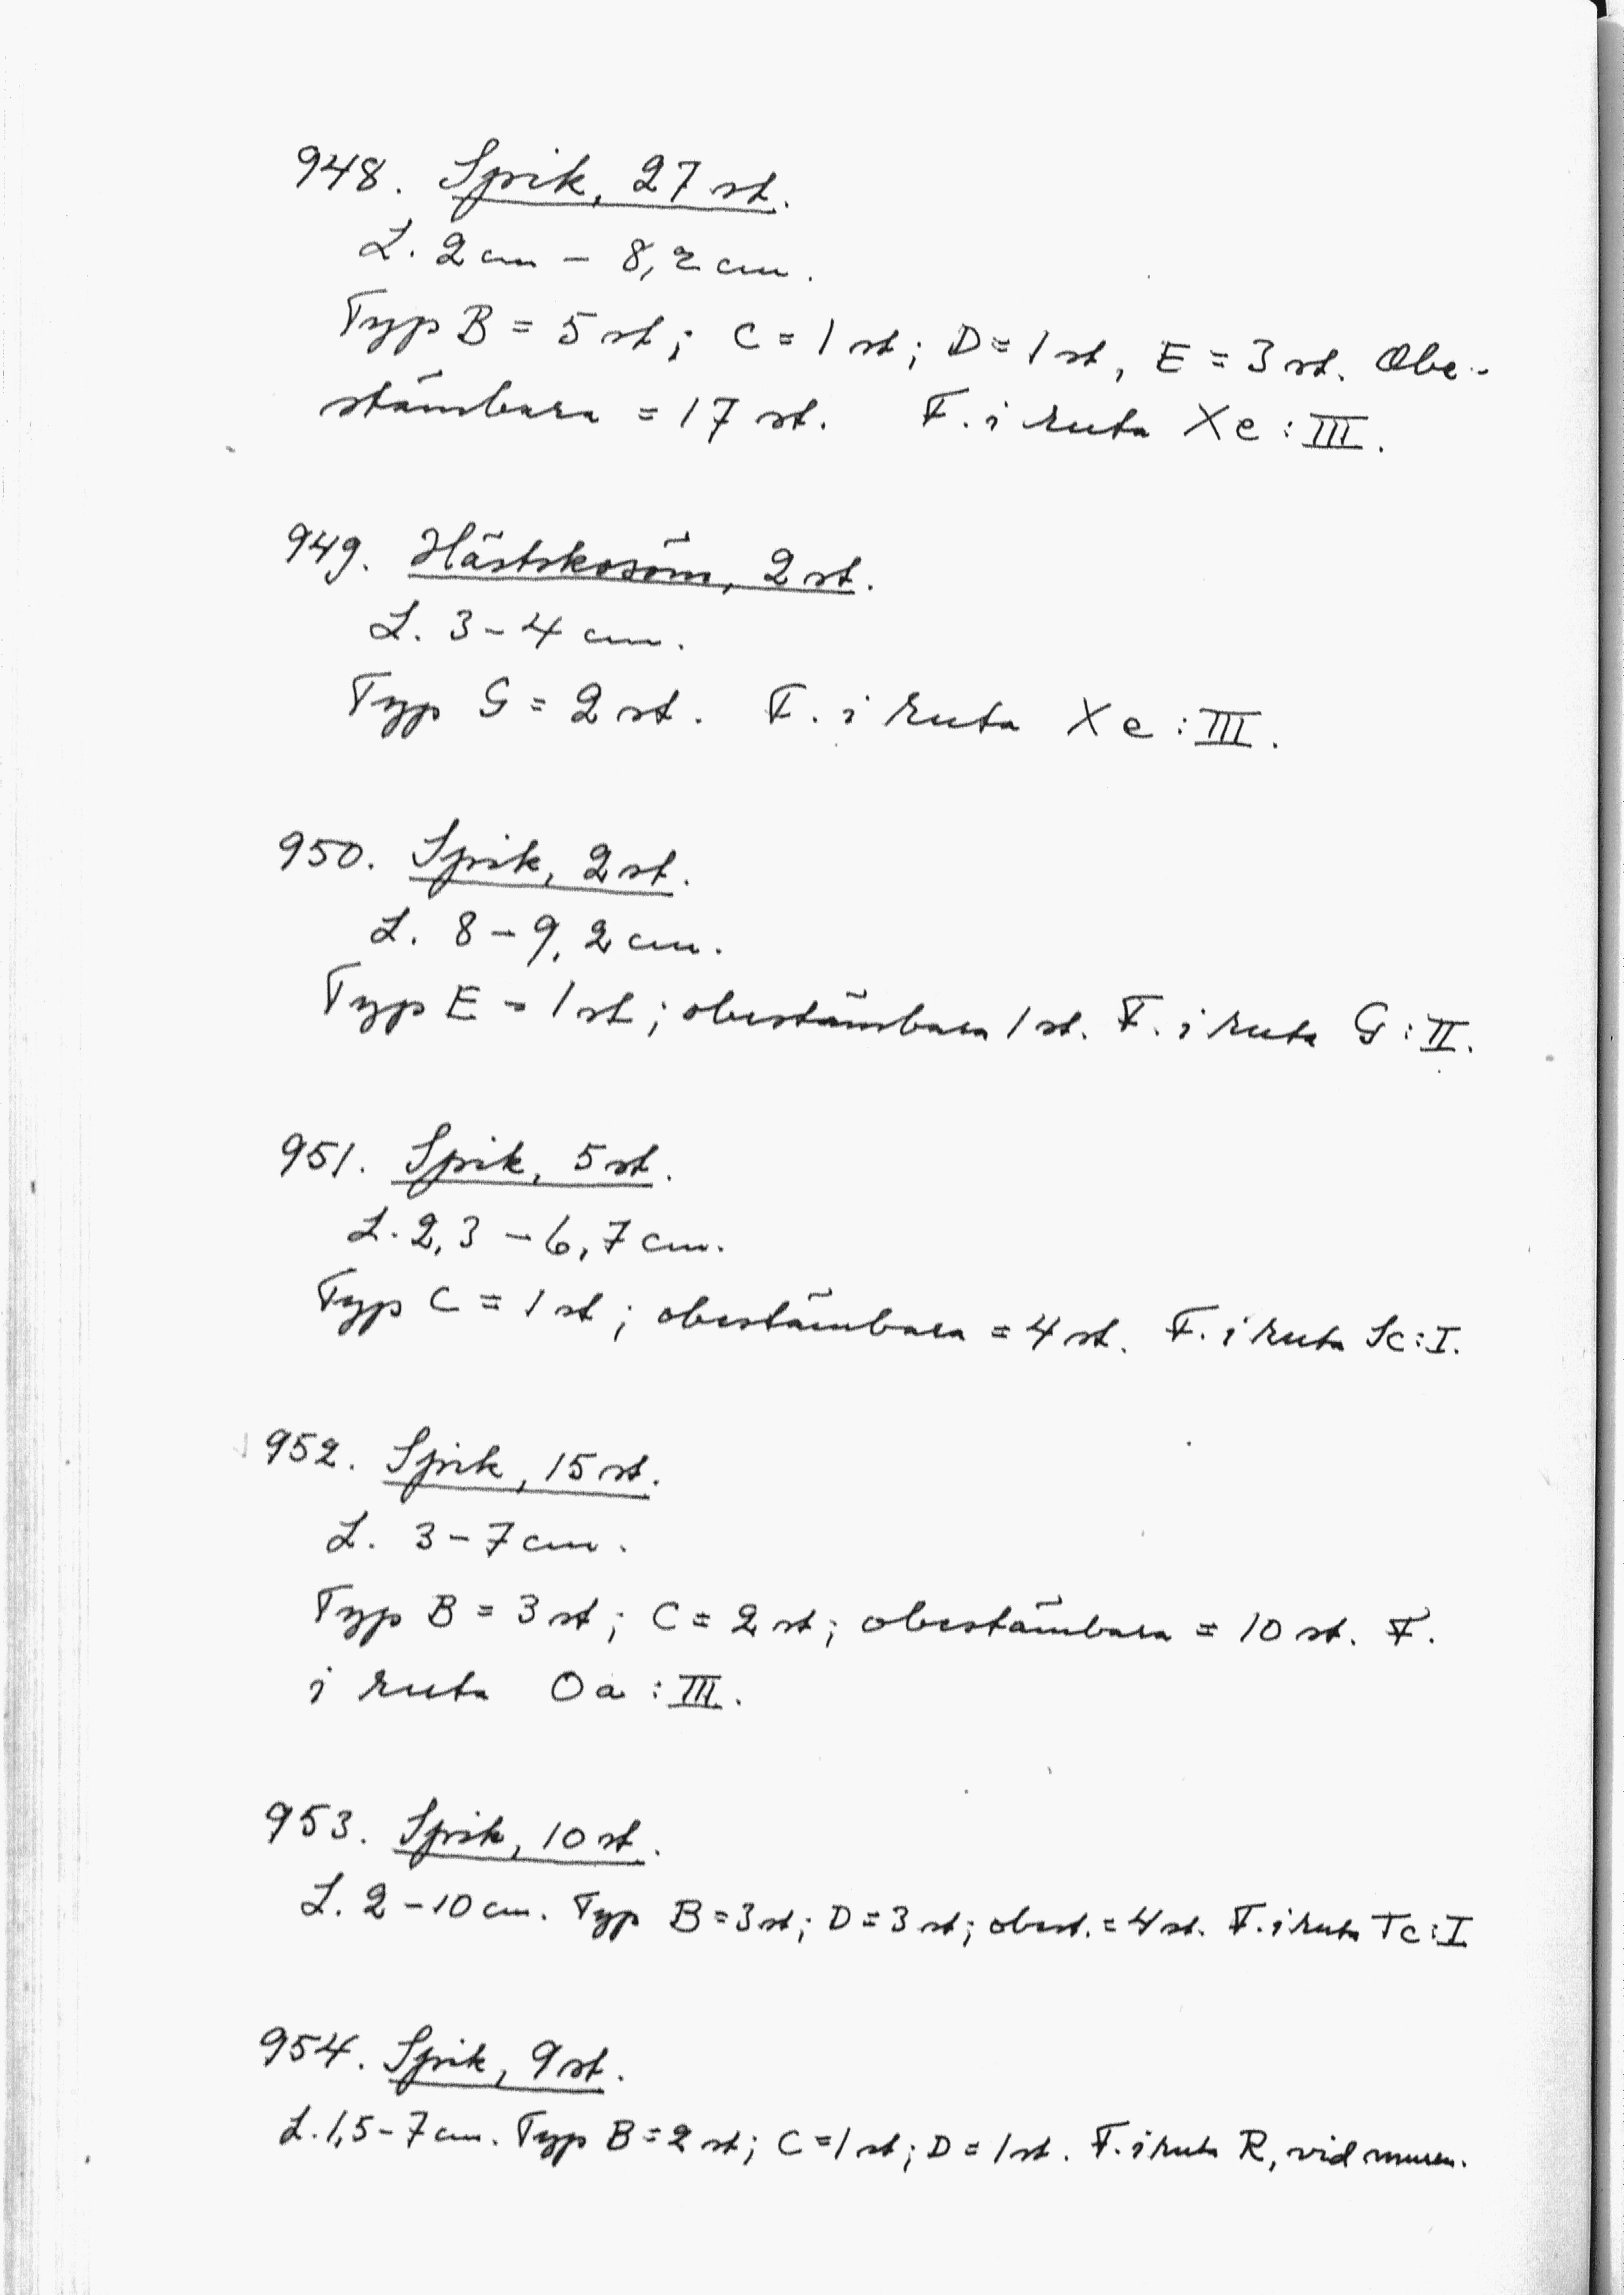 948. Spik, 27 st.
L. 2 cm – 8,2 cm.
Typ B = 5 st; C = 1 st; D = 1 st, E = 3 st. Obe-
stämbara = 17 st. F. i ruta Xe:III.
949. Hästskosöm, 2 st.
L. 3–4 cm.
Typ G = 2 st. F. i ruta Xe:III.
950. Spik, 2 st.
L. 8–9,2 cm.
Typ E = 1 st; obestämbara 1 st. F. i ruta G:II.
951. Spik, 5 st.
L. 2,3–6,7 cm.
Typ C = 1 st; obestämbara = 4 st. F. i ruta Sc:I.
952. Spik, 15 st.
L. 3–7 cm.
Typ B = 3 st; C = 2 st; obestämbara = 10 st. F.
i ruta Oa:III.
953. Spik, 10 st.
L. 2–10 cm. Typ B = 3 st; D = 3 st; obest. = 4 st. F. i ruta Tc:I
954. Spik, 9 st.
L. 1,5–7 cm. Typ B = 2 st; C = 1 st; D = 1 st. F. i ruta R, vid muren.